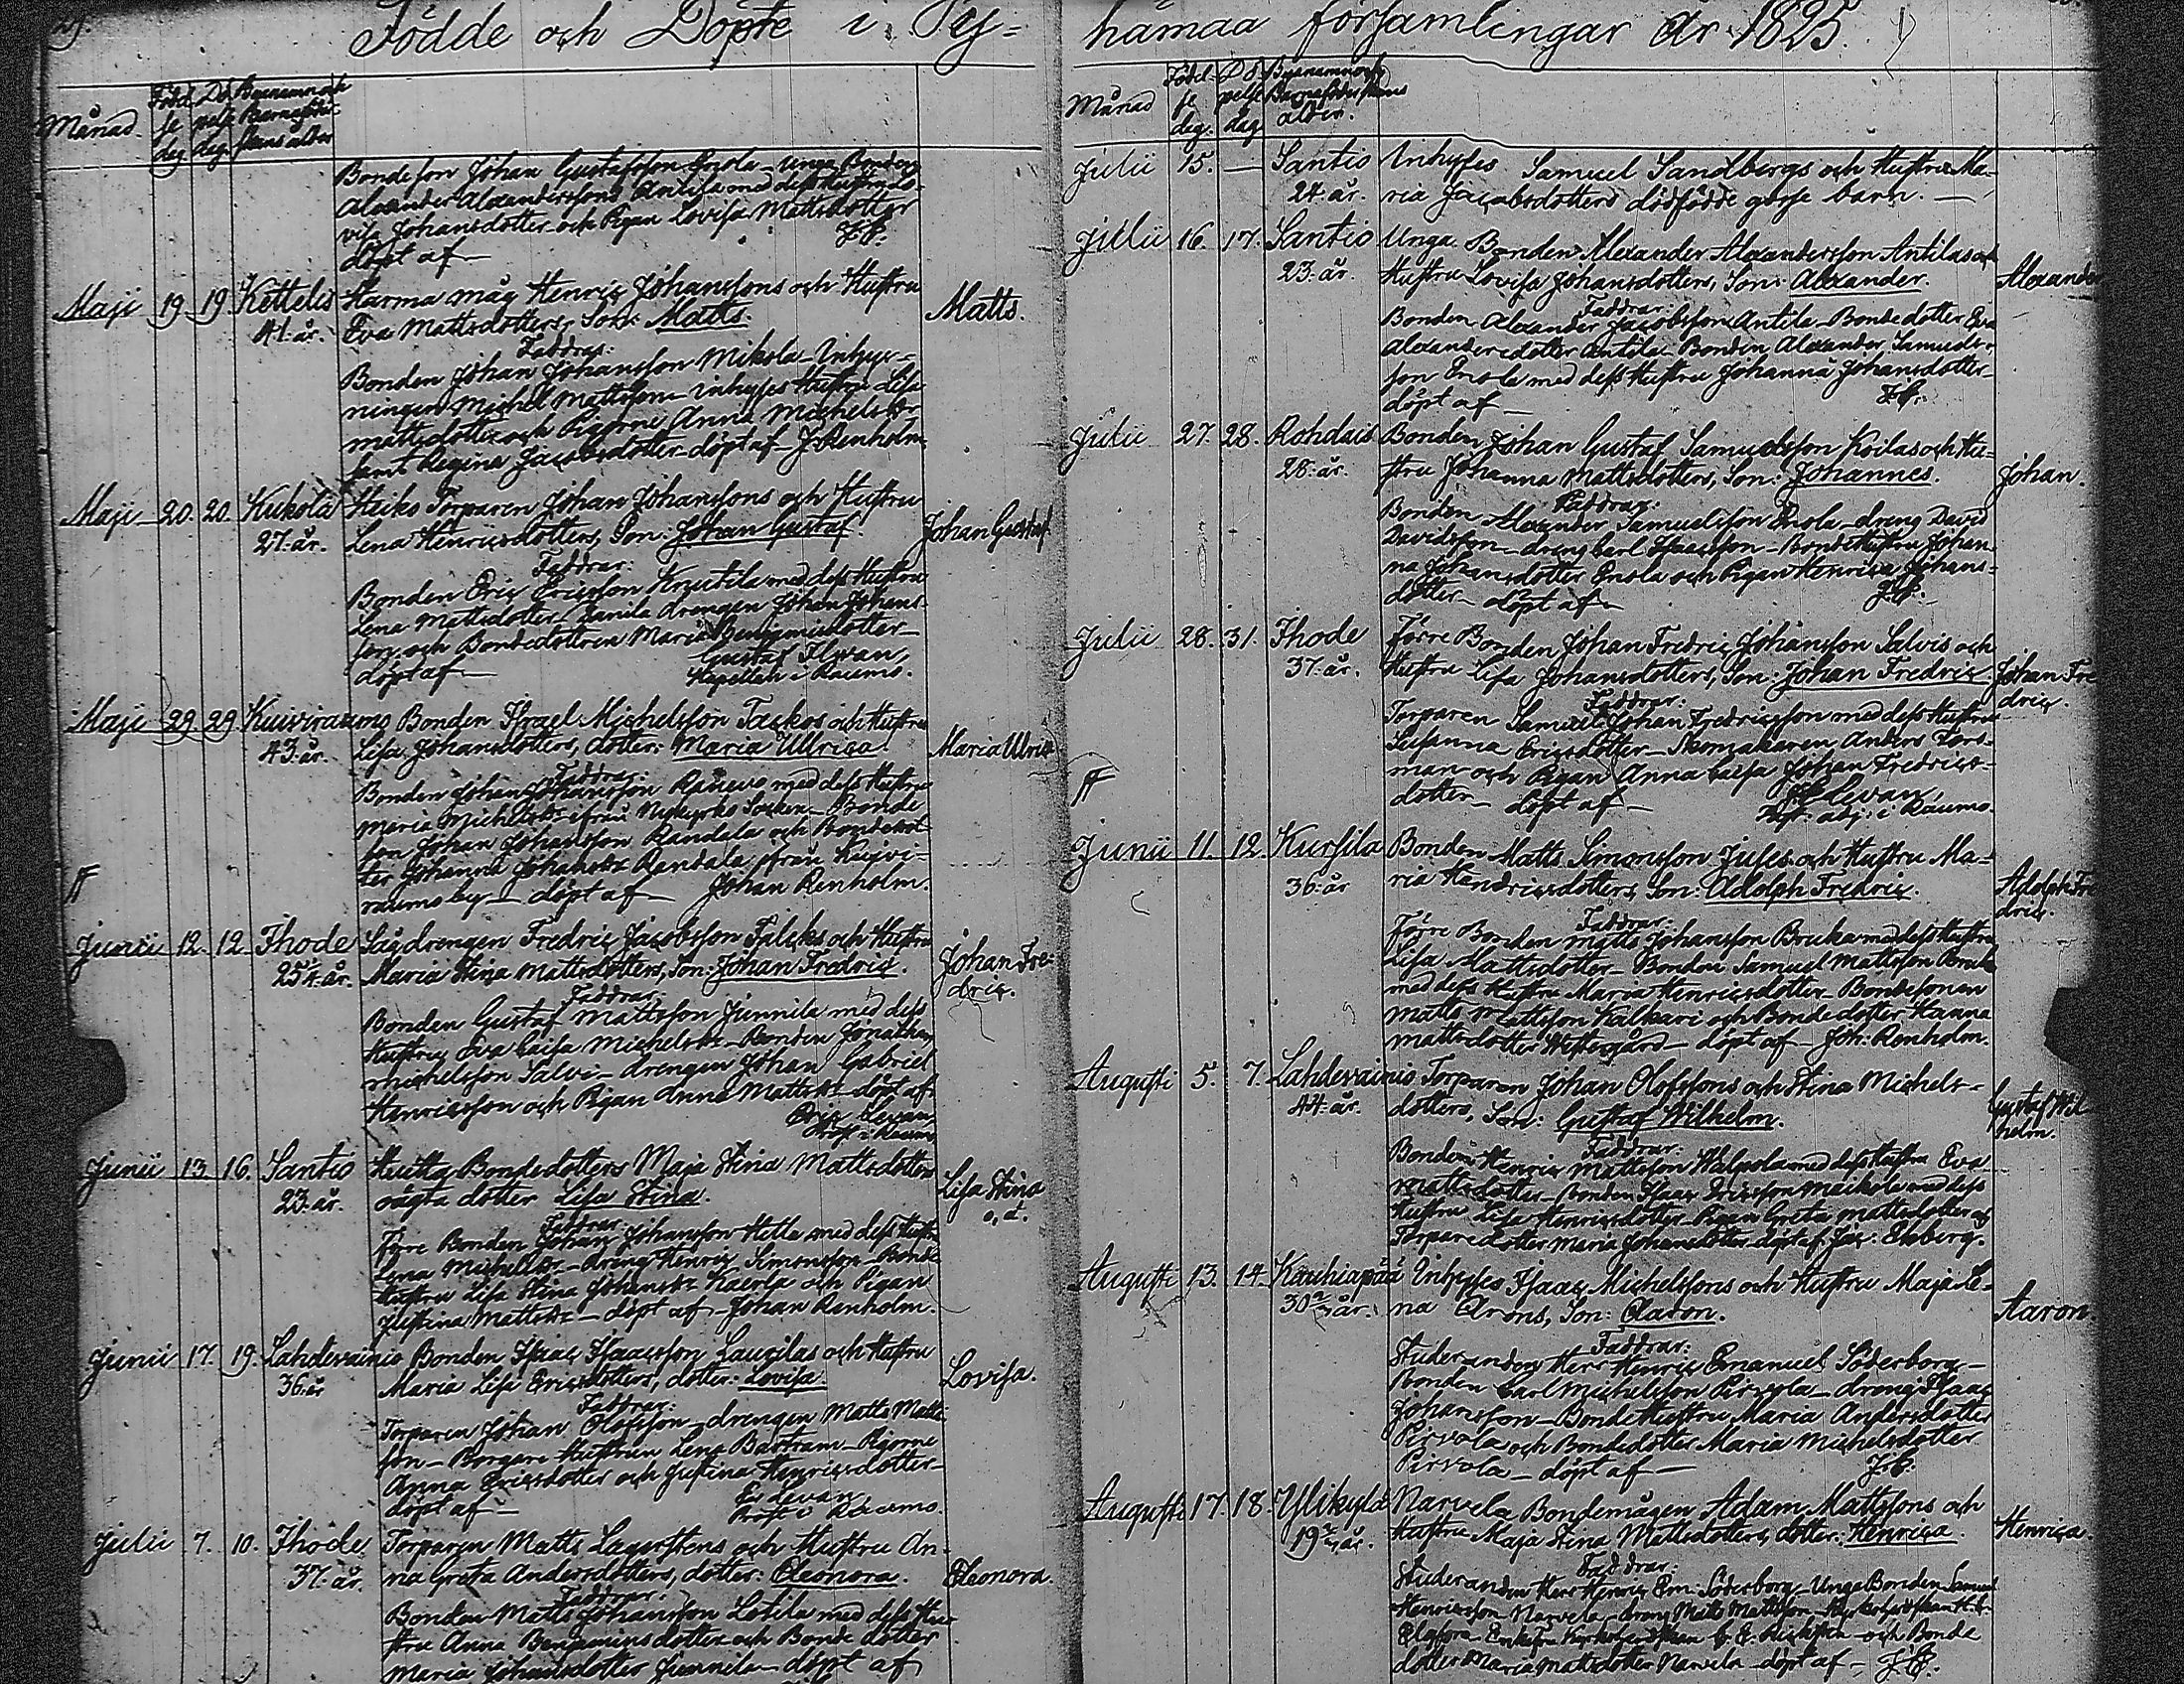 29.
Födde och Döpte i Py=
Månad. Födel se dag Dö pelse dag. Byenamn och Barnaföder skans ålder
Bondeson Johan Gustafsson Ensola - unga Bonden
Alexander Alexanderssons Antila med dess Hustru Lo-
visa Johansdotter och Pigan Lovisa Mattsdotter
döpt af — J.E.
Maji 19 19 Kettelis Harma måg Henric Johanssons och Hustru Matts.
41. år. Eva Mattsdotters, Son: Matts.
Faddrar:
Bonden Johan Johansson Mikola - Inhyses=
ningen Michel Mattsson - inhyses Hustru Lisa
Mattsdotter och Pigorne Anna Michelsdr
samt Regina Jacobsdotter - döpt af J. Renholm
Maji 20. 20. Kukola Heiko Torparen Johan Johanssons och Hustru Johan Gustaf
27. år. Lena Henricsdotters, Son: Johan Gustaf.
Faddrar:
Bonden Eric Ericsson Knutila med dess Hustru
Lena Mattsdotter - drengen Johan Johans-
son, och Bondedottren Maria
döpt af — Gustaf Elwan,
Kapellan i Raumo.
Maji 29 29 Kuiviraumo Bonden Israel Michelsson Tackos och Hustru
43. år. Lisa Johansdotters, dotter: Maria Ullrica Maria Ulrica
Faddrar:
Bonden Johan Johansson Rauvo med dess Hustru
Maria Michelsdr ifrån Nykyrko Socken - Bonde
son Johan Johansson Randala och Bondedot-
ter Johanna Johansdr Randala från Kuivi-
raumo by — döpt af Johan Renholm.
Junii 12. 12. Ihode Sågdrengen Fredric Jacobsson Falcks och Hustru Johan Fre-
25¼ år. Maria Stina Mattsdotters, Son: Johan Fredric. dric.
Faddrar:
Bonden Gustaf Mattsson Junnila med dess
Hustru Eva Caisa Michelsdr - Bonden Jonathan
Michelsson Salvi - drengen Johan Gabriel
Henricsson och Pigan Anna Mattsdr - döpt af
Eric Levan,
Prost i Raumo
Junii 13. 16. Santio Bondedotters Maja Stina Mattsdotters Lisa Stina
23. år. oägta dotter Lisa Stina. o, ä.
Faddrar:
Förre Bonden Johan Johansson Hella med dess Hustru
Lena Michelsdr - dreng Henric Simonsson - Bonde
Hustru Lisa Stina Johansdr Kaerla och Pigan
Justina Mattsdr - döpt af Johan Renholm.
Junii 17. 19. Lahdevainio Bonden Isaac Isaacsson Laurilas och Hustru Lovisa.
36. år Maria Lisa Ericsdotters, dotter: Lovisa.
Faddrar:
Torparen Johan Olofsson - drengen Matts Matts
son - Borgare Hustrun Lena Bartram - Pigorne
Anna Ericsdotter och Justina Henricsdotter -
döpt af — Er. Levan
Prost i Raumo.
Julii 7. 10. Ihode Torparen Matts Lagerstens och Hustru An- Eleonora.
37. år. na Greta Andersdotters, dotter: Eleonora.
Faddrar:
Bonden Matts Johansson Lotila med dess Hu-
stru Anna Benjaminsdotter och Bonde dotter
Maria Johansdotter Junnila - döpt af
hämaa församlingar år 1825.
Månad Födel se dag. Dö pelse dag Byenamn och Barnaföderskans ålder.
Julii 15. — Santio Inhyses Samuel Sandbergs och Hustru Ma-
24. år. ria Jacobsdotters dödfödde gosse barn. —
Julii 16. 17. Santio Unga Bonden Alexander Alexandersson Antilas och Alexander
23. år. Hustru Lovisa Johansdotters, Son: Alexander.
Faddrar:
Bonden Alexander Jacobsson Antila - Bondedotter Eva
Alexandersdotter Antila - Bonden Alexander Samuels-
son Ensola med dess Hustru Johanna Johansdotter -
döpt af — J.E.
Julii 27. 28. Rohdais Bonden Johan Gustaf Samuelsson Koilas och Hu- Johan.
28. år. stru Johanna Mattsdotters, Son: Johannes.
Faddrar:
Bonden Alexander Samuelsson Ensola - dreng David
Davidsson - dreng Carl Isaacsson - Bonde Hustru Johan-
na Johansdotter Ensola och Pigan Henrica Johans-
dotter - döpt af — J.E.
Julii 28. 31. Ihode Förre Bonden Johan Fredric Johansson Salvis och Johan Fre
37. år. Hustru Lisa Johansdotters, Son: Johan Fredric dric.
Faddrar:
Torparen Samuel Johan Fredricsson med dess Hustru
Susanna Ericsdotter - Skomakaren Anders Fors-
man och Pigan Anna Caisa Johan Fredrics-
dotter - döpt af — Elevan,
i Raumo.
Junii 11. 12. Kursila Bonden Matts Simonsson Juses och Hustru Ma- Adolph Fre
36. år ria Henricsdotters, Son: Adolph Fredric. dric.
Faddrar:
Förre Bonden Matts Johansson Bruka med dess Hustru
Lisa Mattsdotter - Bonden Samuel Mattsson Bruka
med dess Hustru Maria Henricsdotter - Bondesonen
Matts Mattsson Kalkari och Bonde dotter Hanna
Mattsdotter Westergård - döpt af Joh: Renholm.
Augusti 5. 7. Lahdevainio Torparen Johan Olofssons och Stina Michels- Gustaf Wil
44. år. dotters, Son: Gustaf Wilhelm. helm.
Faddrar:
Bonden Henric Mattsson Walpola med dess Hustru Eva
Mattsdotter - Bonden Isaac Ericsson Maikola med dess
Hustru Lisa Henricsdotter - Pigan Greta Mattsdotter och
Torparedotter Maria Johansdotter - döpt af Jac: Ekberg.
Augusti 13. 14. Kauhiapää Inhyses Isaac Michelssons och Hustru Maja Le- Aaron.
30 år. na Arons, Son: Aaron.
Faddrar:
Studeranden Herr Henric Emanuel Söderborg -
Bonden Carl Michelsson Pirvola - dreng Isaac
Johansson - Bonde Hustru Maria Andersdotter
Pirvola och Bondedotter Maria Michelsdotter
Pirvola - döpt af — J.E.
Augusti 17. 18. Ylikylä Narvela Bondemågen Adam Mattssons och Henrica.
19 år. Hustru Maja Stina Mattsdotters, dotter: Henrica.
Faddrar:
Studeranden Herr Henric Em. Söderborg - Unga Bonden Samuel
Henricsson Narvela - dreng Matts Mattsson -
och Bonde
dotter Maria Mattsdotter Narvela - döpt af — J.E.